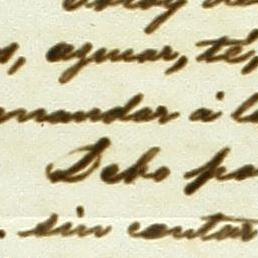 azucar, té,
mandar á l
Debo p
. sin contar